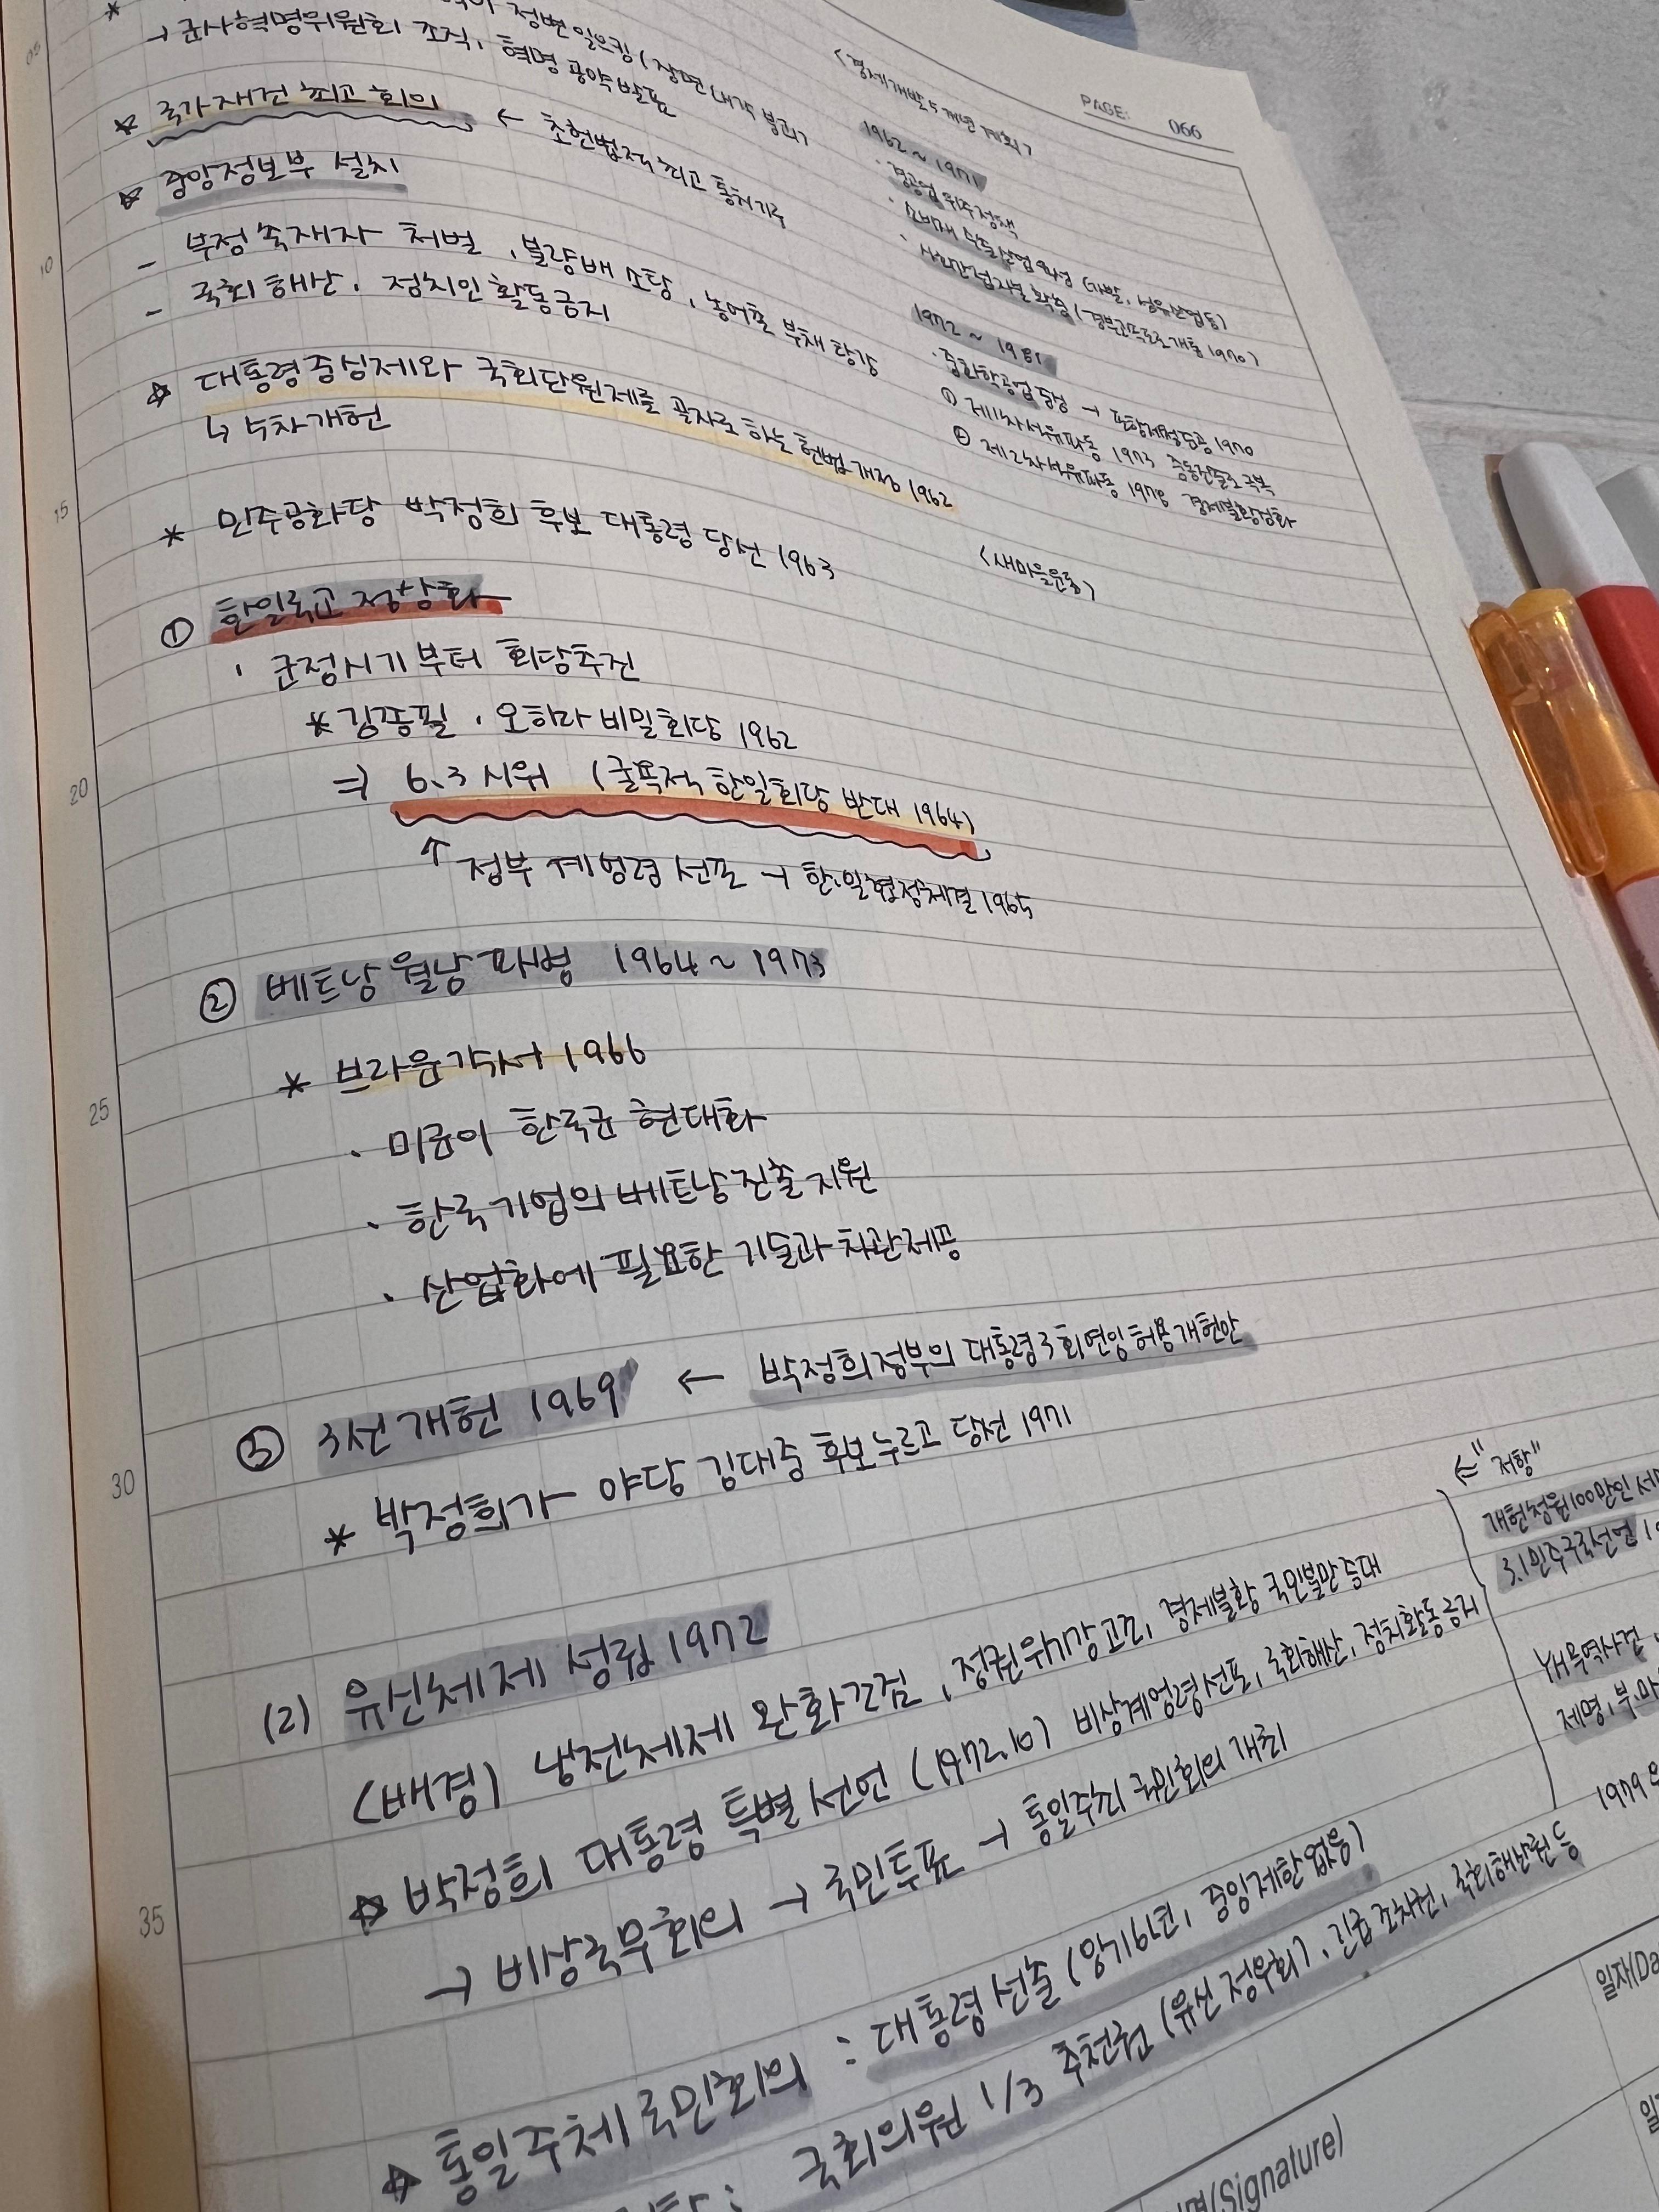 정변 일으킴 (장면 내각 붕괴)
→ 군사혁명위원회 조직, 혁명 공약 발표
☆ 국가재건 최고 회의 ← 초헌법적 최고 통치기구
☆ 중앙정보부 설치
- 부정축재자 처벌, 불량배 소탕, 농어촌 부채 탕감
- 국회 해산, 정치인 활동금지
☆ 대통령중심제와 국회단원제를 골자로 하는 헌법개정 1962
↳ 5차개헌
* 민주공화당 박정희 후보 대통령 당선 1963
① 한일국교 정상화
· 군정시기부터 회담추진
* 김종필, 오히라 비밀회담 1962
⇒ 6.3 시위 (굴욕적 한일회담 반대 1964)
↑ 정부 계엄령 선포 → 한·일협정체결 1965
② 베트남 월남 파병 1964 ~ 1973
* 브라운각서 1966
· 미군이 한국군 현대화
· 한국기업의 베트남 진출 지원
· 산업화에 필요한 기술과 차관제공
③ 3선개헌 1969 ← 박정희정부의 대통령3회연임허용개헌안
* 박정희가 야당 김대중 후보누르고 당선 1971
(2) 유신체제 성립 1972
<배경> 냉전체제 완화 , 정권위기강고조, 경제불황 국민불만 증대
☆ 박정희 대통령 특별 선언 (1972.10) 비상계엄령선포, 국회해산, 정치활동금지
→ 비상국무회의 → 국민투표 → 통일주최 국민회의 개최
☆ 통일주체국민회의 : 대통령선출 (임기6년, 중임제한없음)
: 국회의원 1/3 추천권 (유신정우회), 긴급조치권, 국회해산권 등
PAGE: 066
<경제개발 5개년 계획>
1962 ~ 1971
· 경공업 위주정책
· 소비재 산업 육성 (가발, 섬유산업등)
· 사회간접자본 확충 (경부고속도로개통 1970)
1972 ~ 1981
· 중화학공업 → 포항제철 1970
① 제1차석유파동 1973 중동진출로 극복
② 제2차석유파동 1978 경제불황심화
<새마을운동>
⇐ "저항"
개헌청원100만인 서
3.1민주구국선언
YH무역사건,
제명, 부·마
1979
05
10
15
20
25
30
35
일자(Da
명(Signature)
일